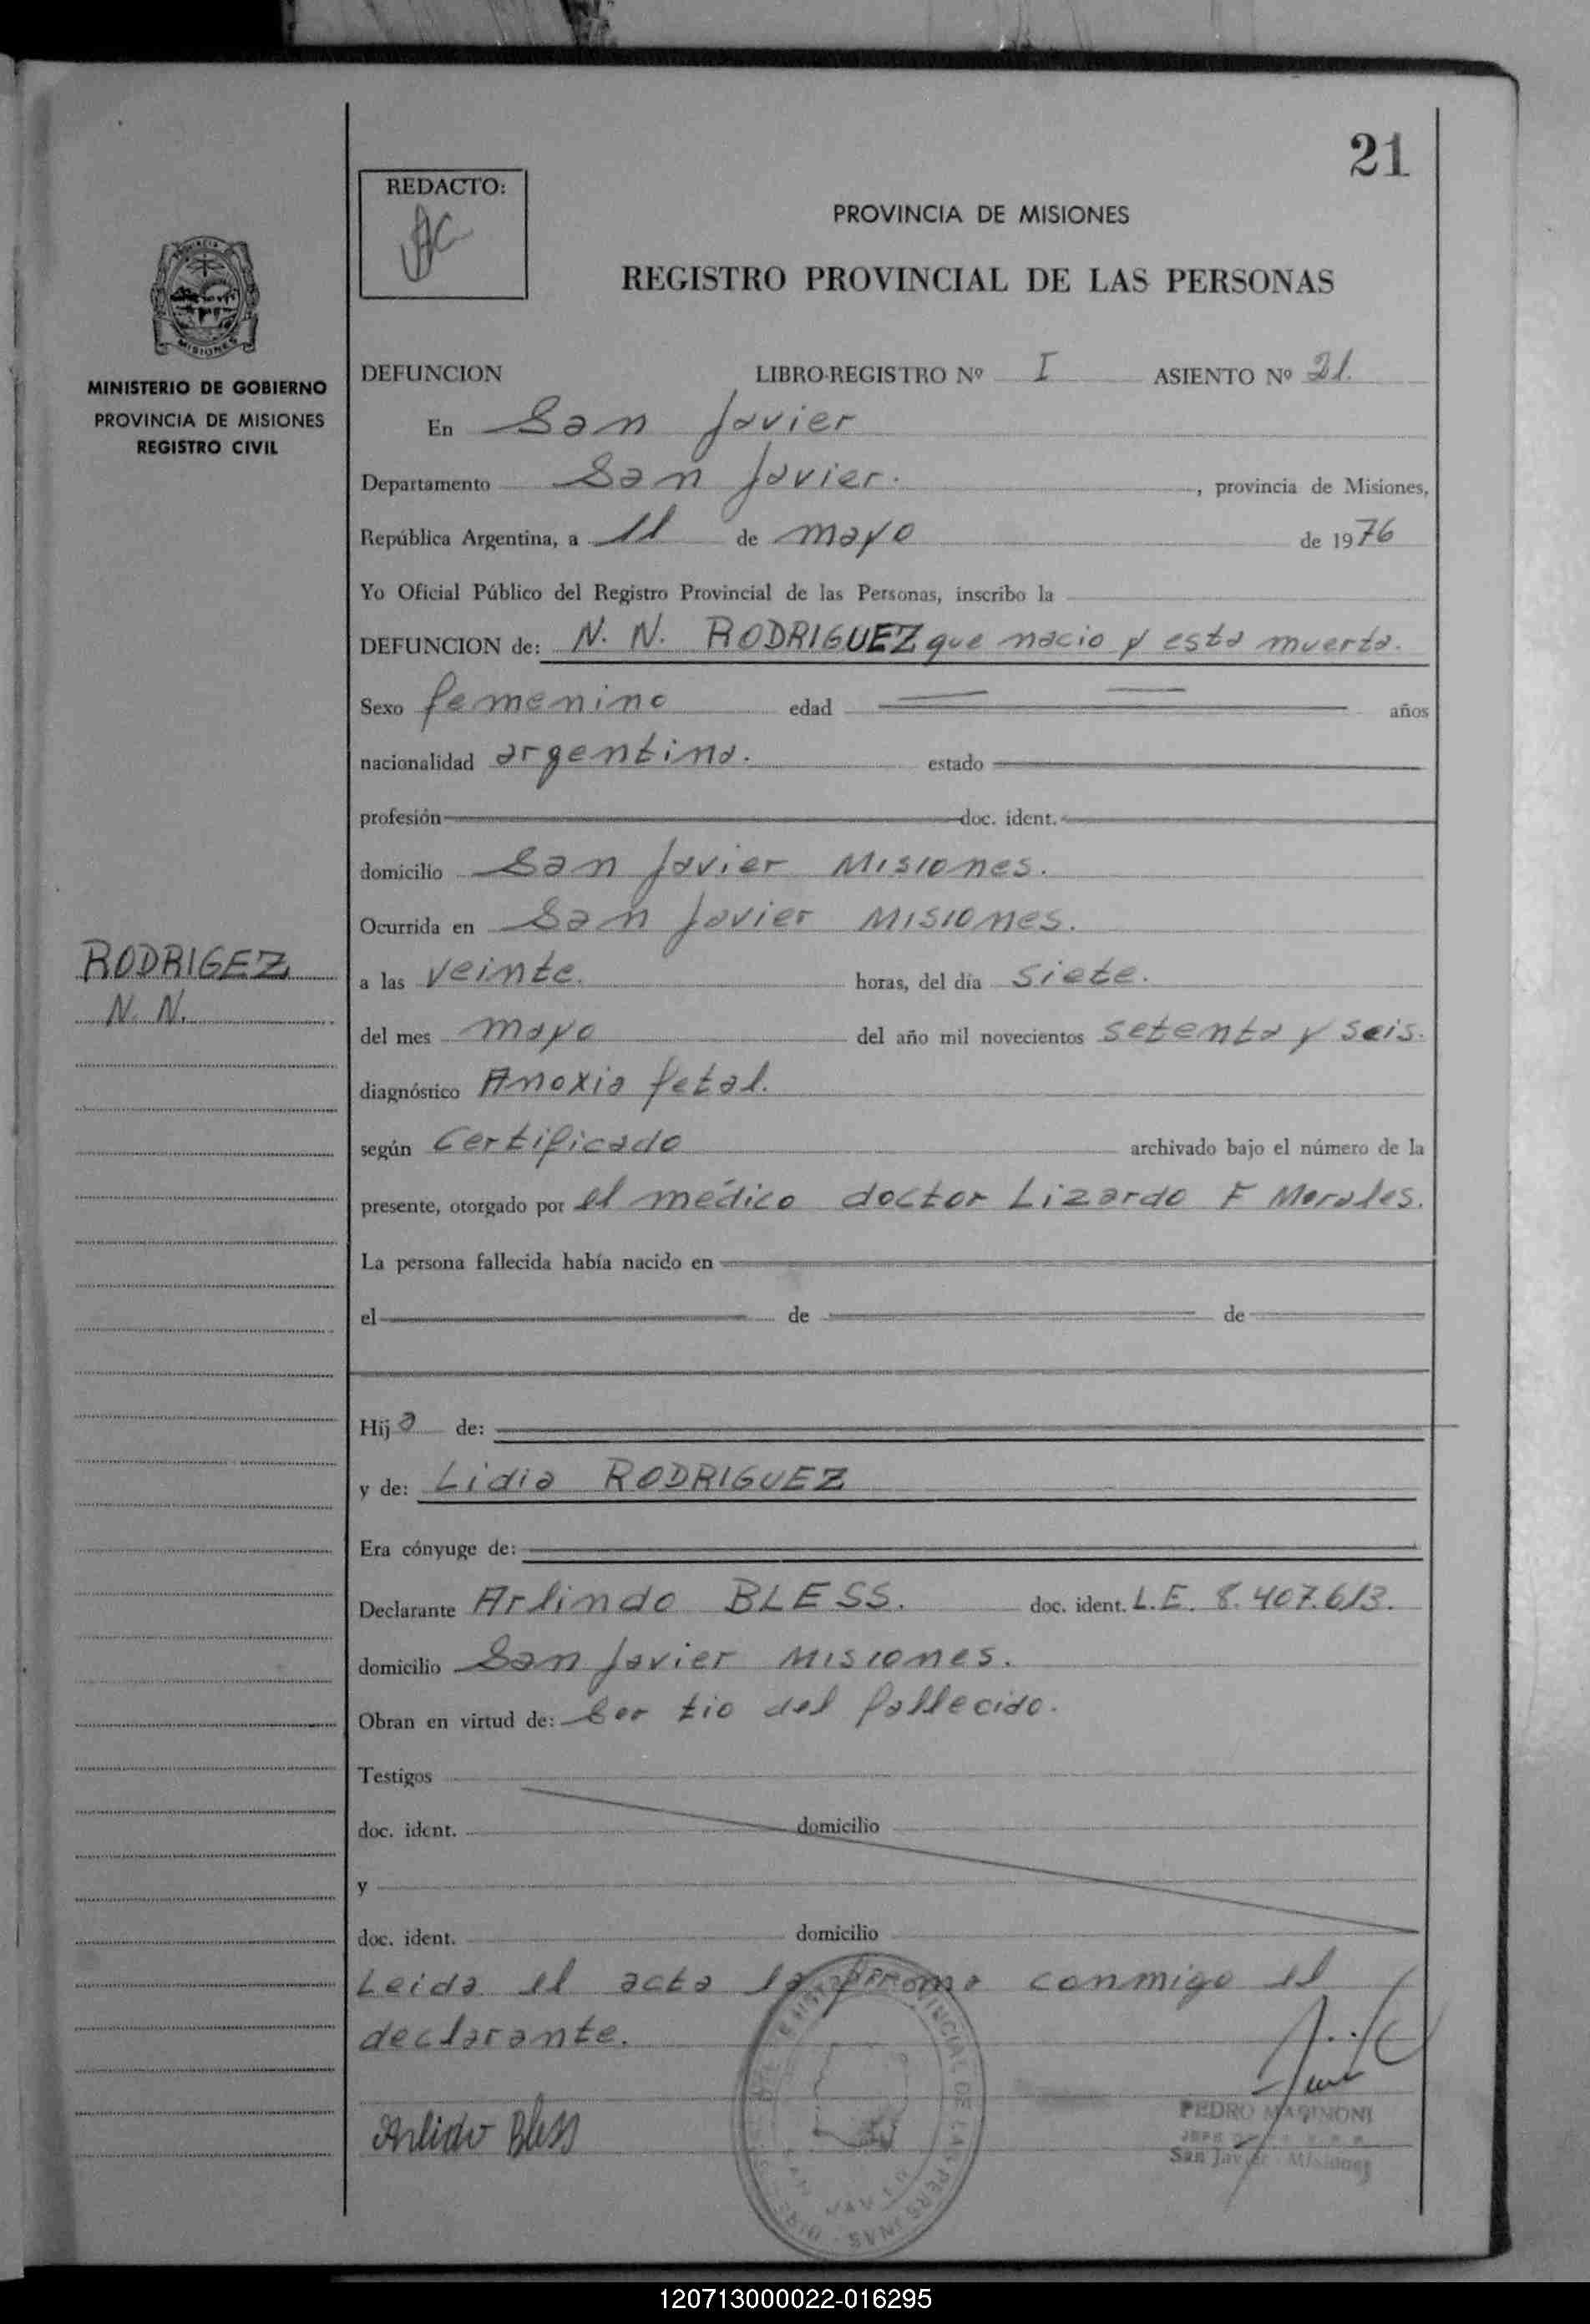 21
REDACTO:
PROVINCIA DE MISIONES
REGISTRO PROVINCIAL DE LAS PERSONAS
MISIONES
MINISTERIO DE GOBIERNO
PROVINCIA DE MISIONES
REGISTRO CIVIL
DEFUNCION LIBRO-REGISTRO Nº I ASIENTO Nº 21.
En San Javier
Departamento San Javier. , provincia de Misiones,
República Argentina, a 11 de mayo de 1976
Yo Oficial Público del Registro Provincial de las Personas, inscribo la
DEFUNCION de: N. N. RODRIGUEZ que nacio y esta muerta.
Sexo femenino edad años
nacionalidad argentina. estado
profesión doc. ident.
domicilio San Javier Misiones.
Ocurrida en San Javier Misiones.
RODRIGEZ
N. N.
a las veinte. horas, del día siete.
del mes mayo del año mil novecientos setenta y seis.
diagnóstico Anoxia fetal.
según Certificado archivado bajo el número de la
presente, otorgado por el médico doctor Lizardo F Morales.
La persona fallecida había nacido en
el de de
Hija de:
y de: Lidia RODRIGUEZ
Era cónyuge de:
Declarante Arlindo BLESS. doc. ident. L.E. 8.407.613.
domicilio San Javier Misiones.
Obran en virtud de: Ser tio del fallecido.
Testigos
doc. ident. domicilio
y
doc. ident. domicilio
Leida el acta la firma conmigo el
declarante.
Arlindo Bless
PEDRO MARINONI
San Javier Misiones
120713000022-016295